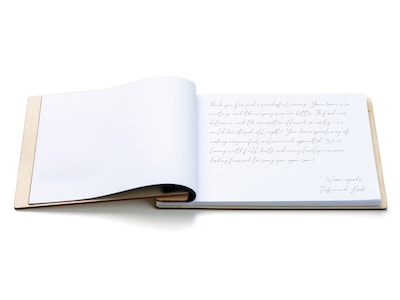 Thank you for such a wonderful evening. Your home is so
inviting, and the company was even better. The food was
delicious, and the conversation flowed so easily - we
could have stayed all night! You have a special way of
making everyone feel welcome and appreciated. We're
leaving with full hearts and many lovely memories.
Looking forward to seeing you again soon!
Warm regards,
and